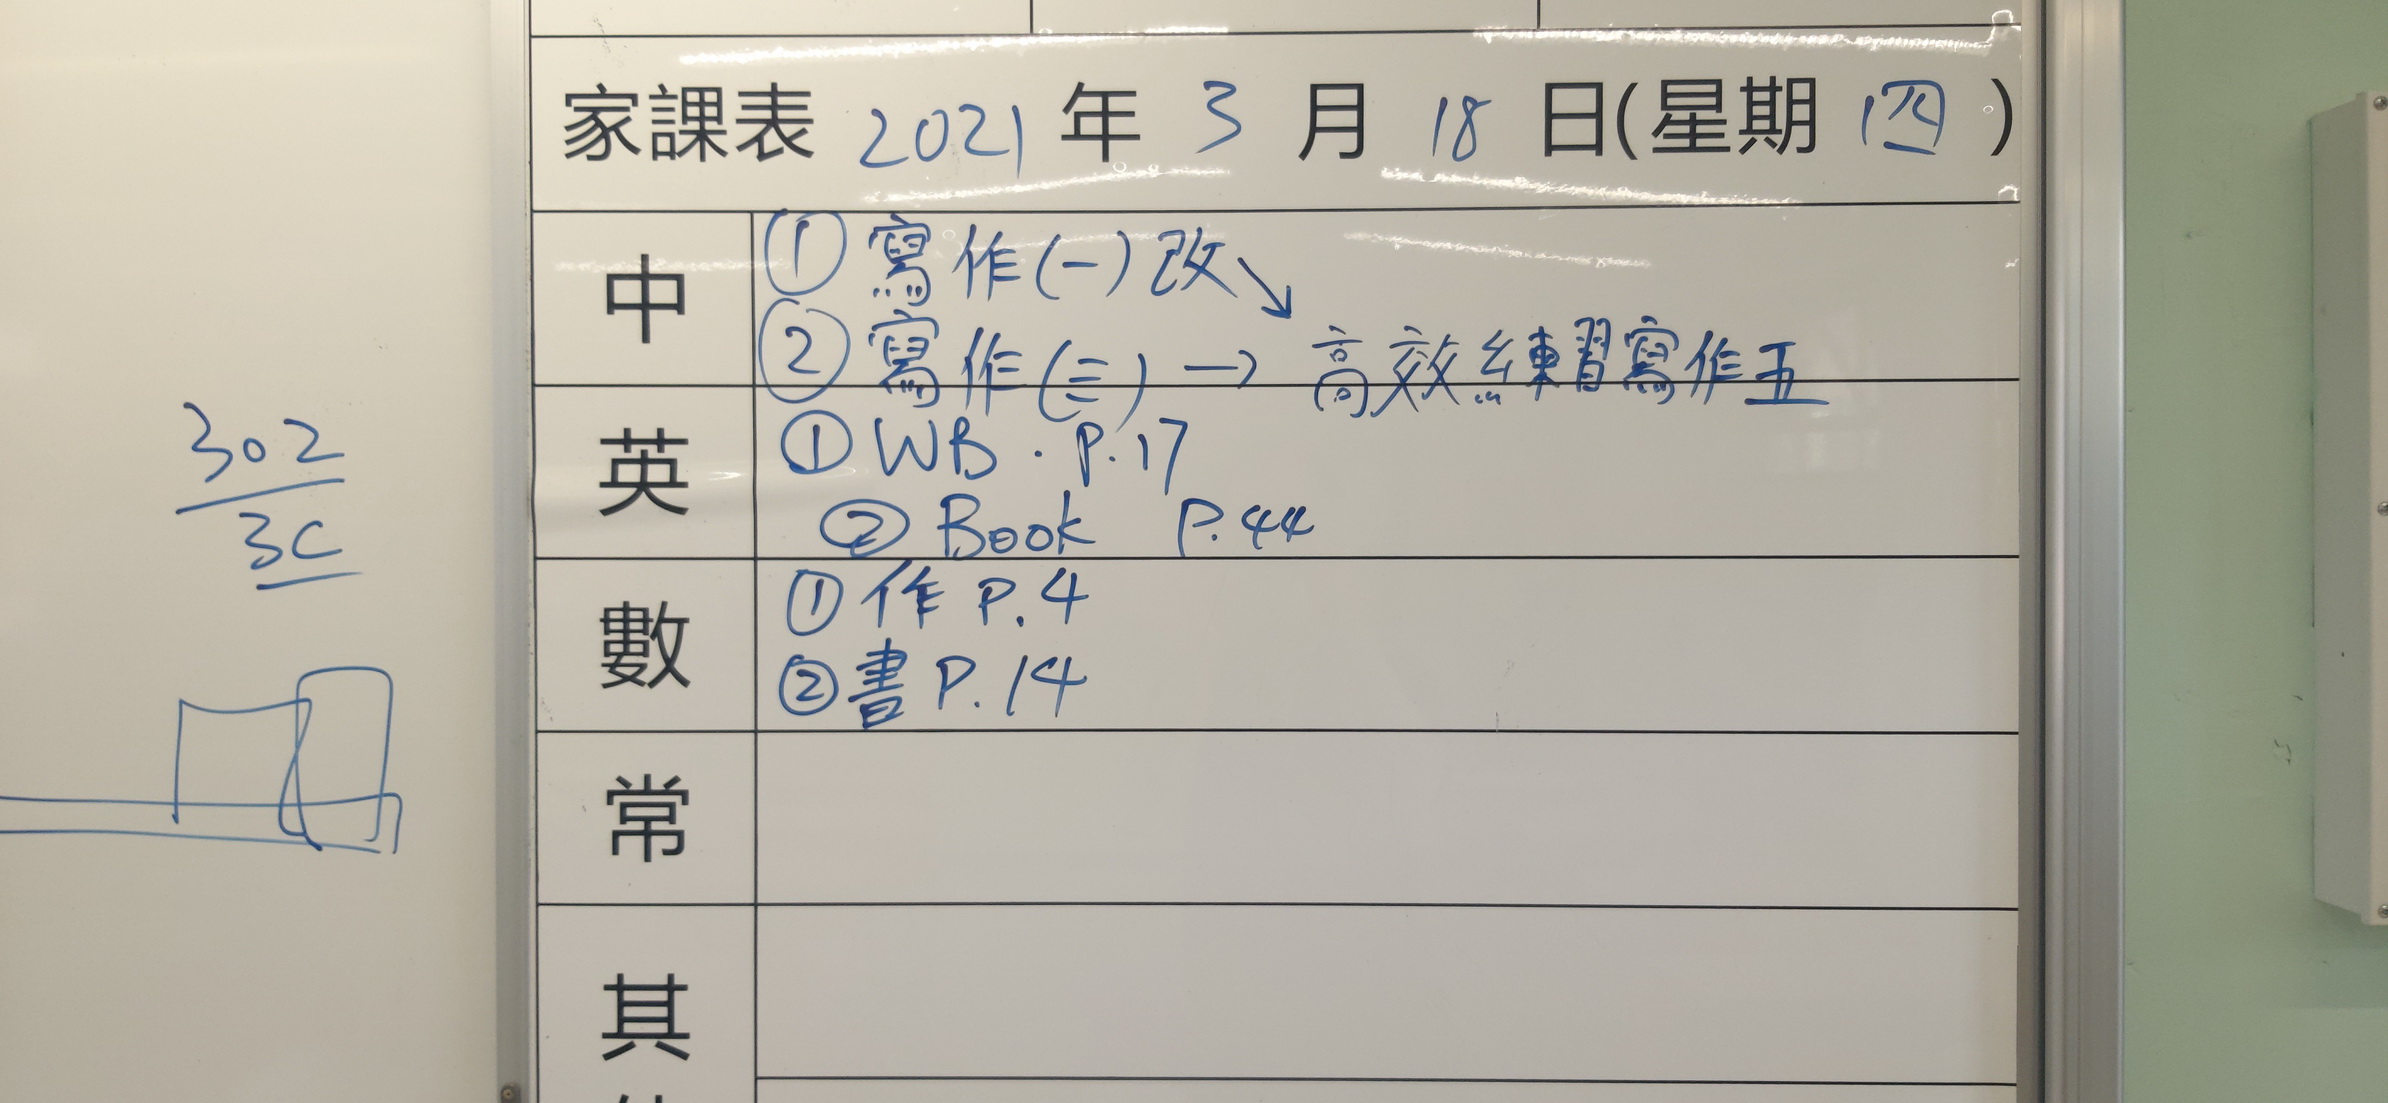 家課表 2021 年 3 月 18 日(星期 四 )
中
① 寫作(一)改↘
② 寫作(三) → 高效練習寫作五
英
① WB . P.17
② Book P.44
數
① 作 P.4
② 書 P.14
常
其
302
3C